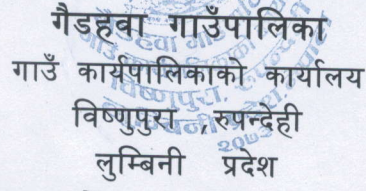 गैडहवा गाउँपालिका
गाउँ कार्यपालिकाको कार्यालय
विष्णुपुरा ,रुपन्देही
लुम्बिनी प्रदेश
२०७३